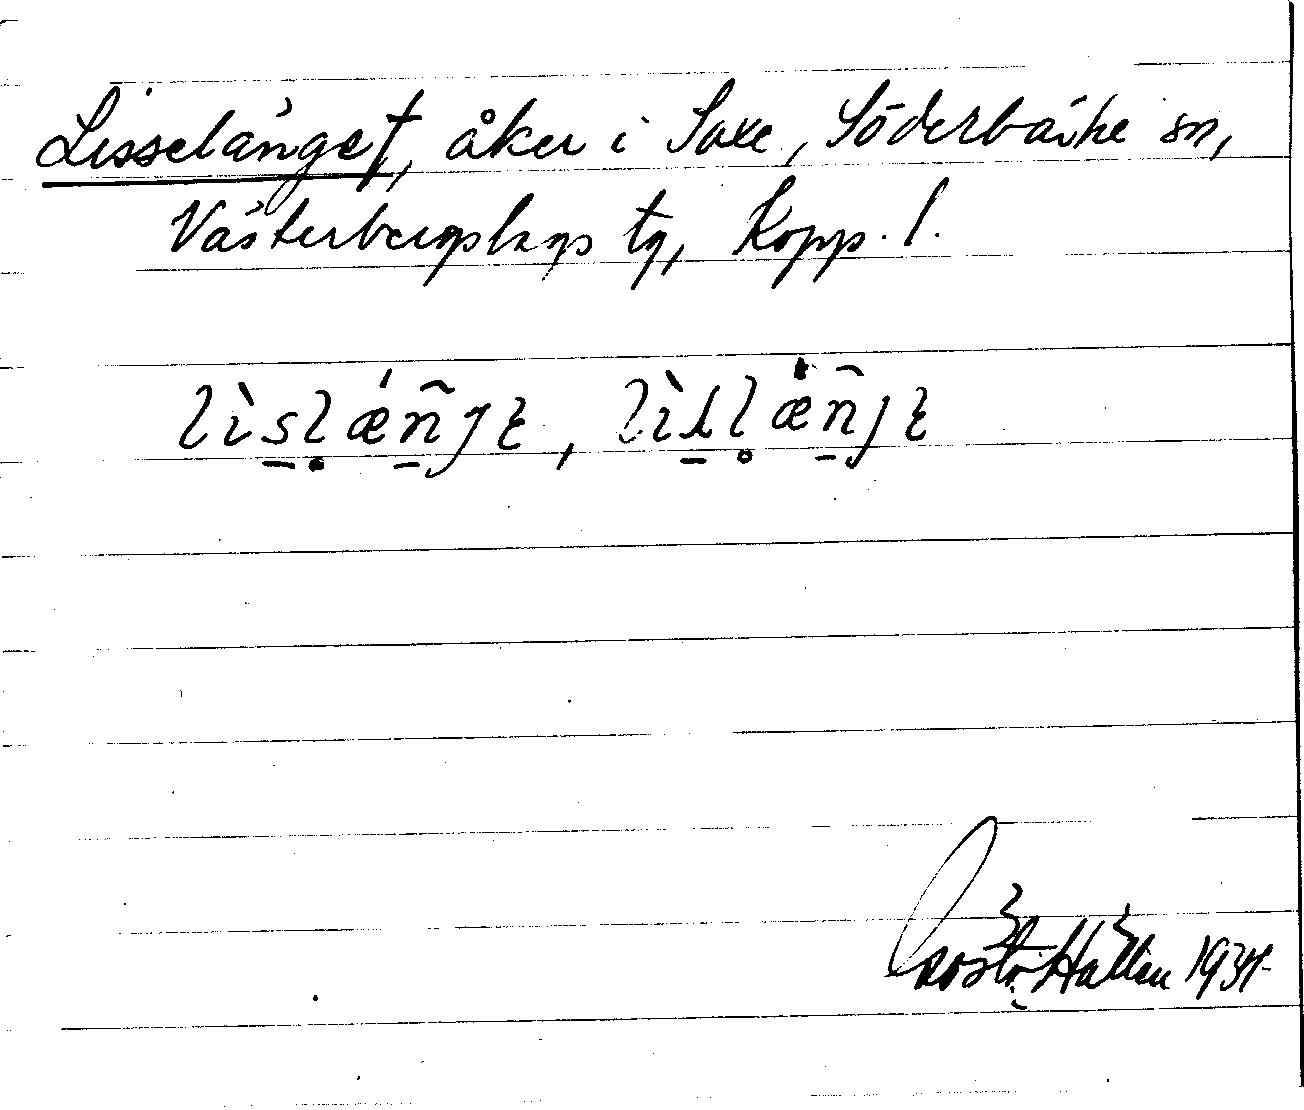 Lisselänget, åker i Saxe, Söderbärke sn,
Västerbergslags tg, Kopp. l.
Gösta Hallén 1934